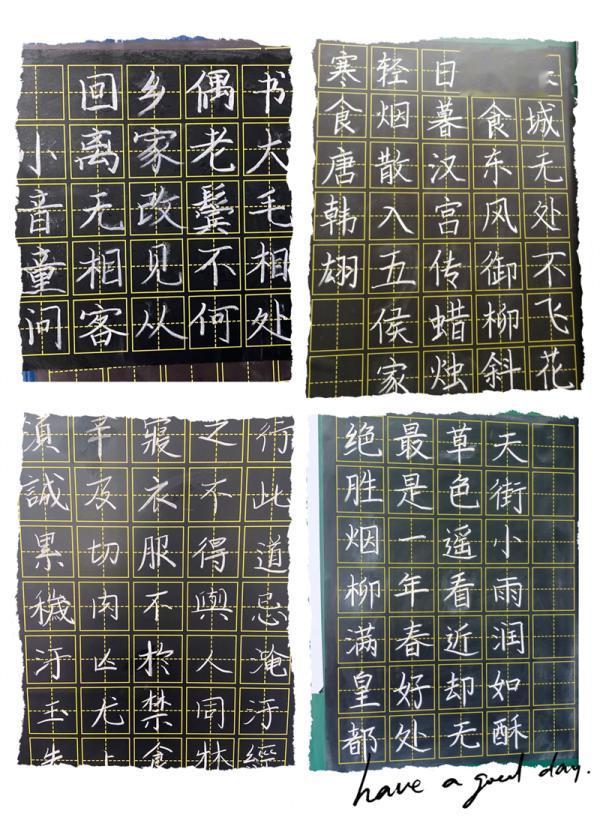 回乡偶书
小离家老大
音无改鬓毛
童相见不相
问客从何处
城无处不飞花
食东风御柳斜
日暮汉宫传蜡烛
轻烟散入五侯家
寒食唐韩翃
行此道忌淹汙經
之不得與人同牀
寢衣服不於禁食
及切肉凶尤
誠累穢汙玉
天街小雨润如酥
草色遥看近却无
最是一年春好处
绝胜烟柳满皇都
have a good day.